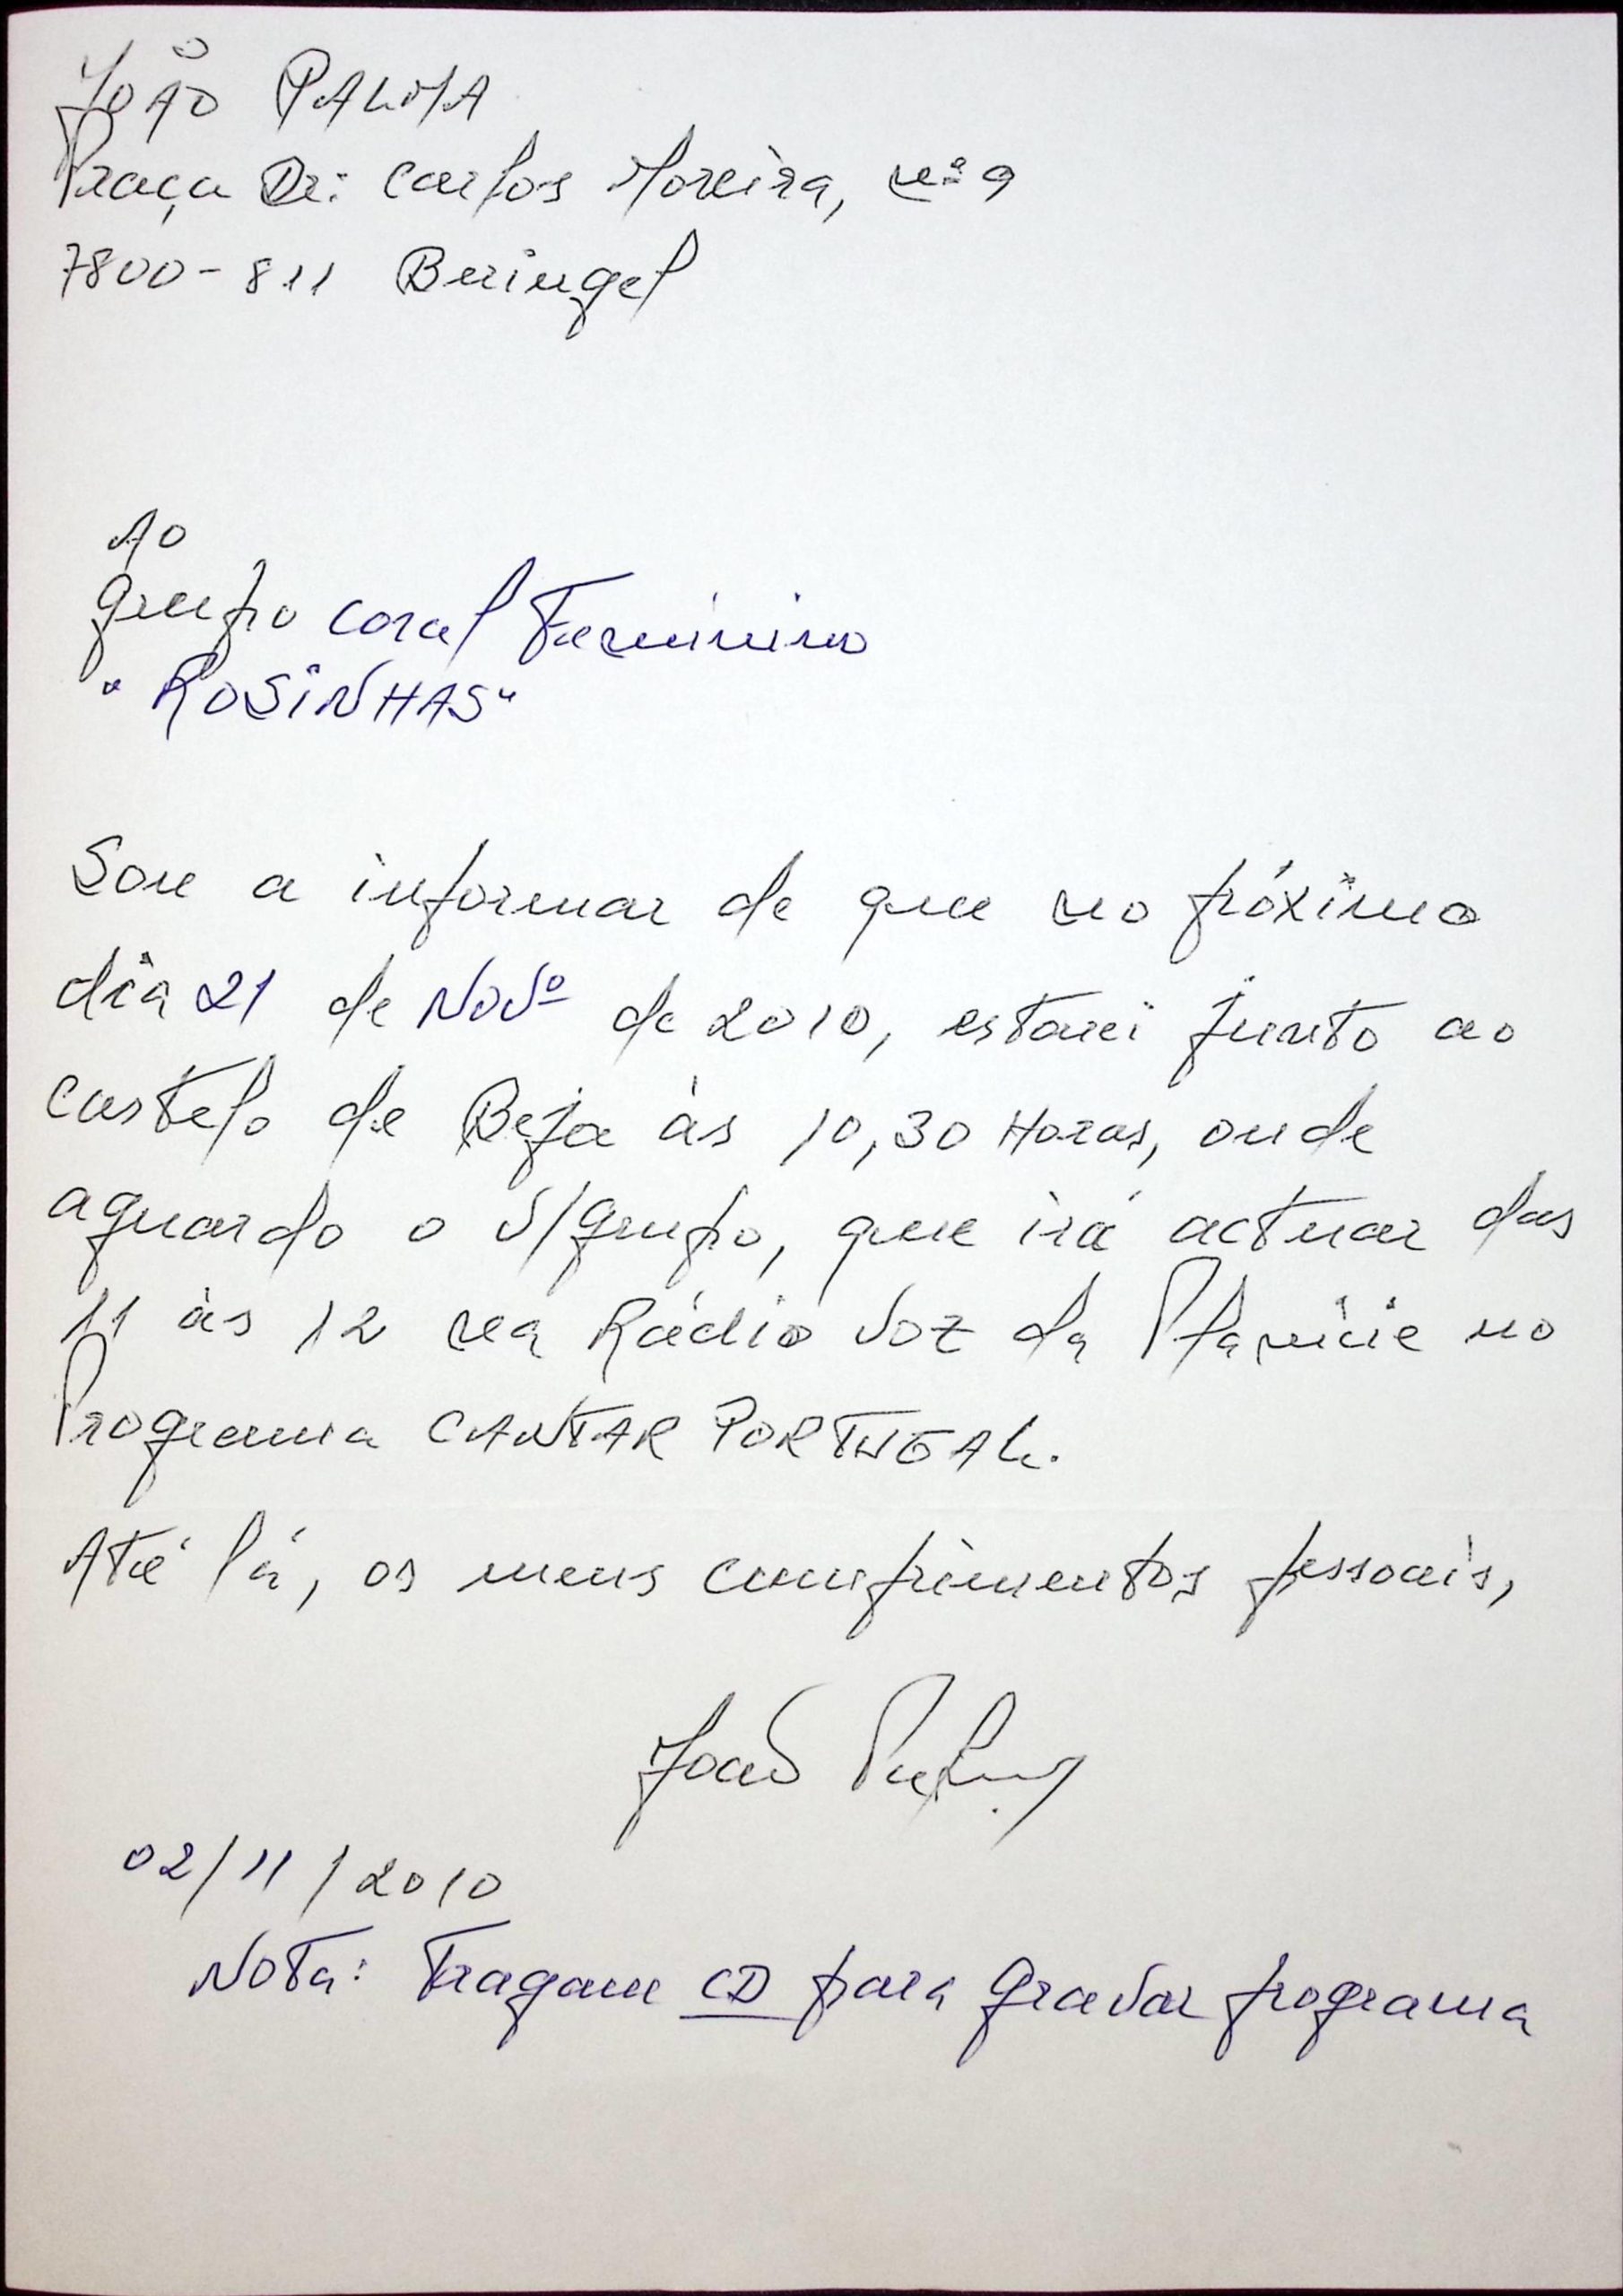 João PALMA
Praça Dr: Carlos Moreira, nº 9
7800-811 Beringel
Ao
Grupo Coral Feminino
"ROSINHAS"
Sou a informar de que no próximo
dia 21 de Novº de 2010, estarei junto ao
castelo de Beja às 10,30 Horas, onde
aguardo o V/Grupo, que irá actuar das
11 às 12 na Rádio Voz da Planície no
Programa CANTAR PORTUGAL.
Até lá, os meus cumprimentos pessoais,
João Palma
02/11/2010
Nota: Tragam CD para gravar programa